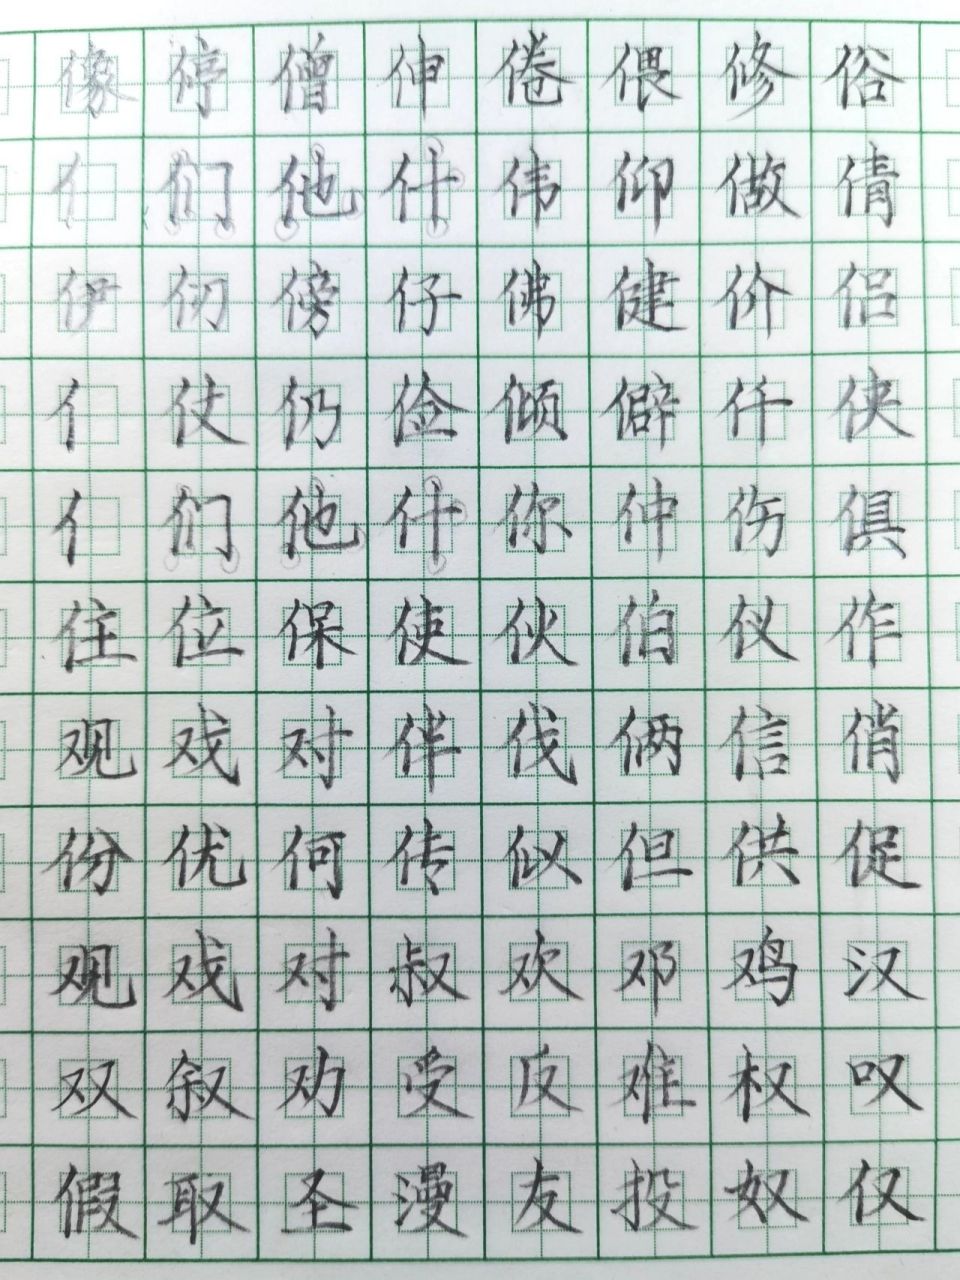 像 停 僧 伸 倦 偎 修 俗
亻 们 他 什 伟 仰 做 倩
伊 仞 傍 仔 佛 健 价 侣
亻 仗 仍 俭 倾 僻 仟 侠
亻 们 他 什 你 仲 伤 俱
住 位 保 使 伙 伯 仪 作
观 戏 对 伴 伐 俩 信 俏
份 优 何 传 似 但 供 促
观 戏 对 叔 欢 邓 鸡 汉
双 叙 劝 受 反 难 权 叹
假 取 圣 漫 友 投 奴 仅